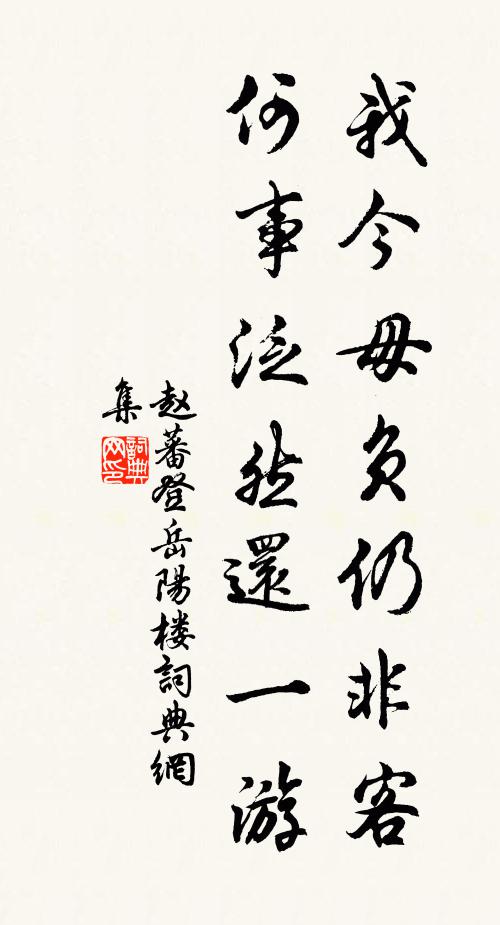 我今毋负仍非客
何事泛然還一游
赵蕃登岳陽楼詞典網
集
詞典网印